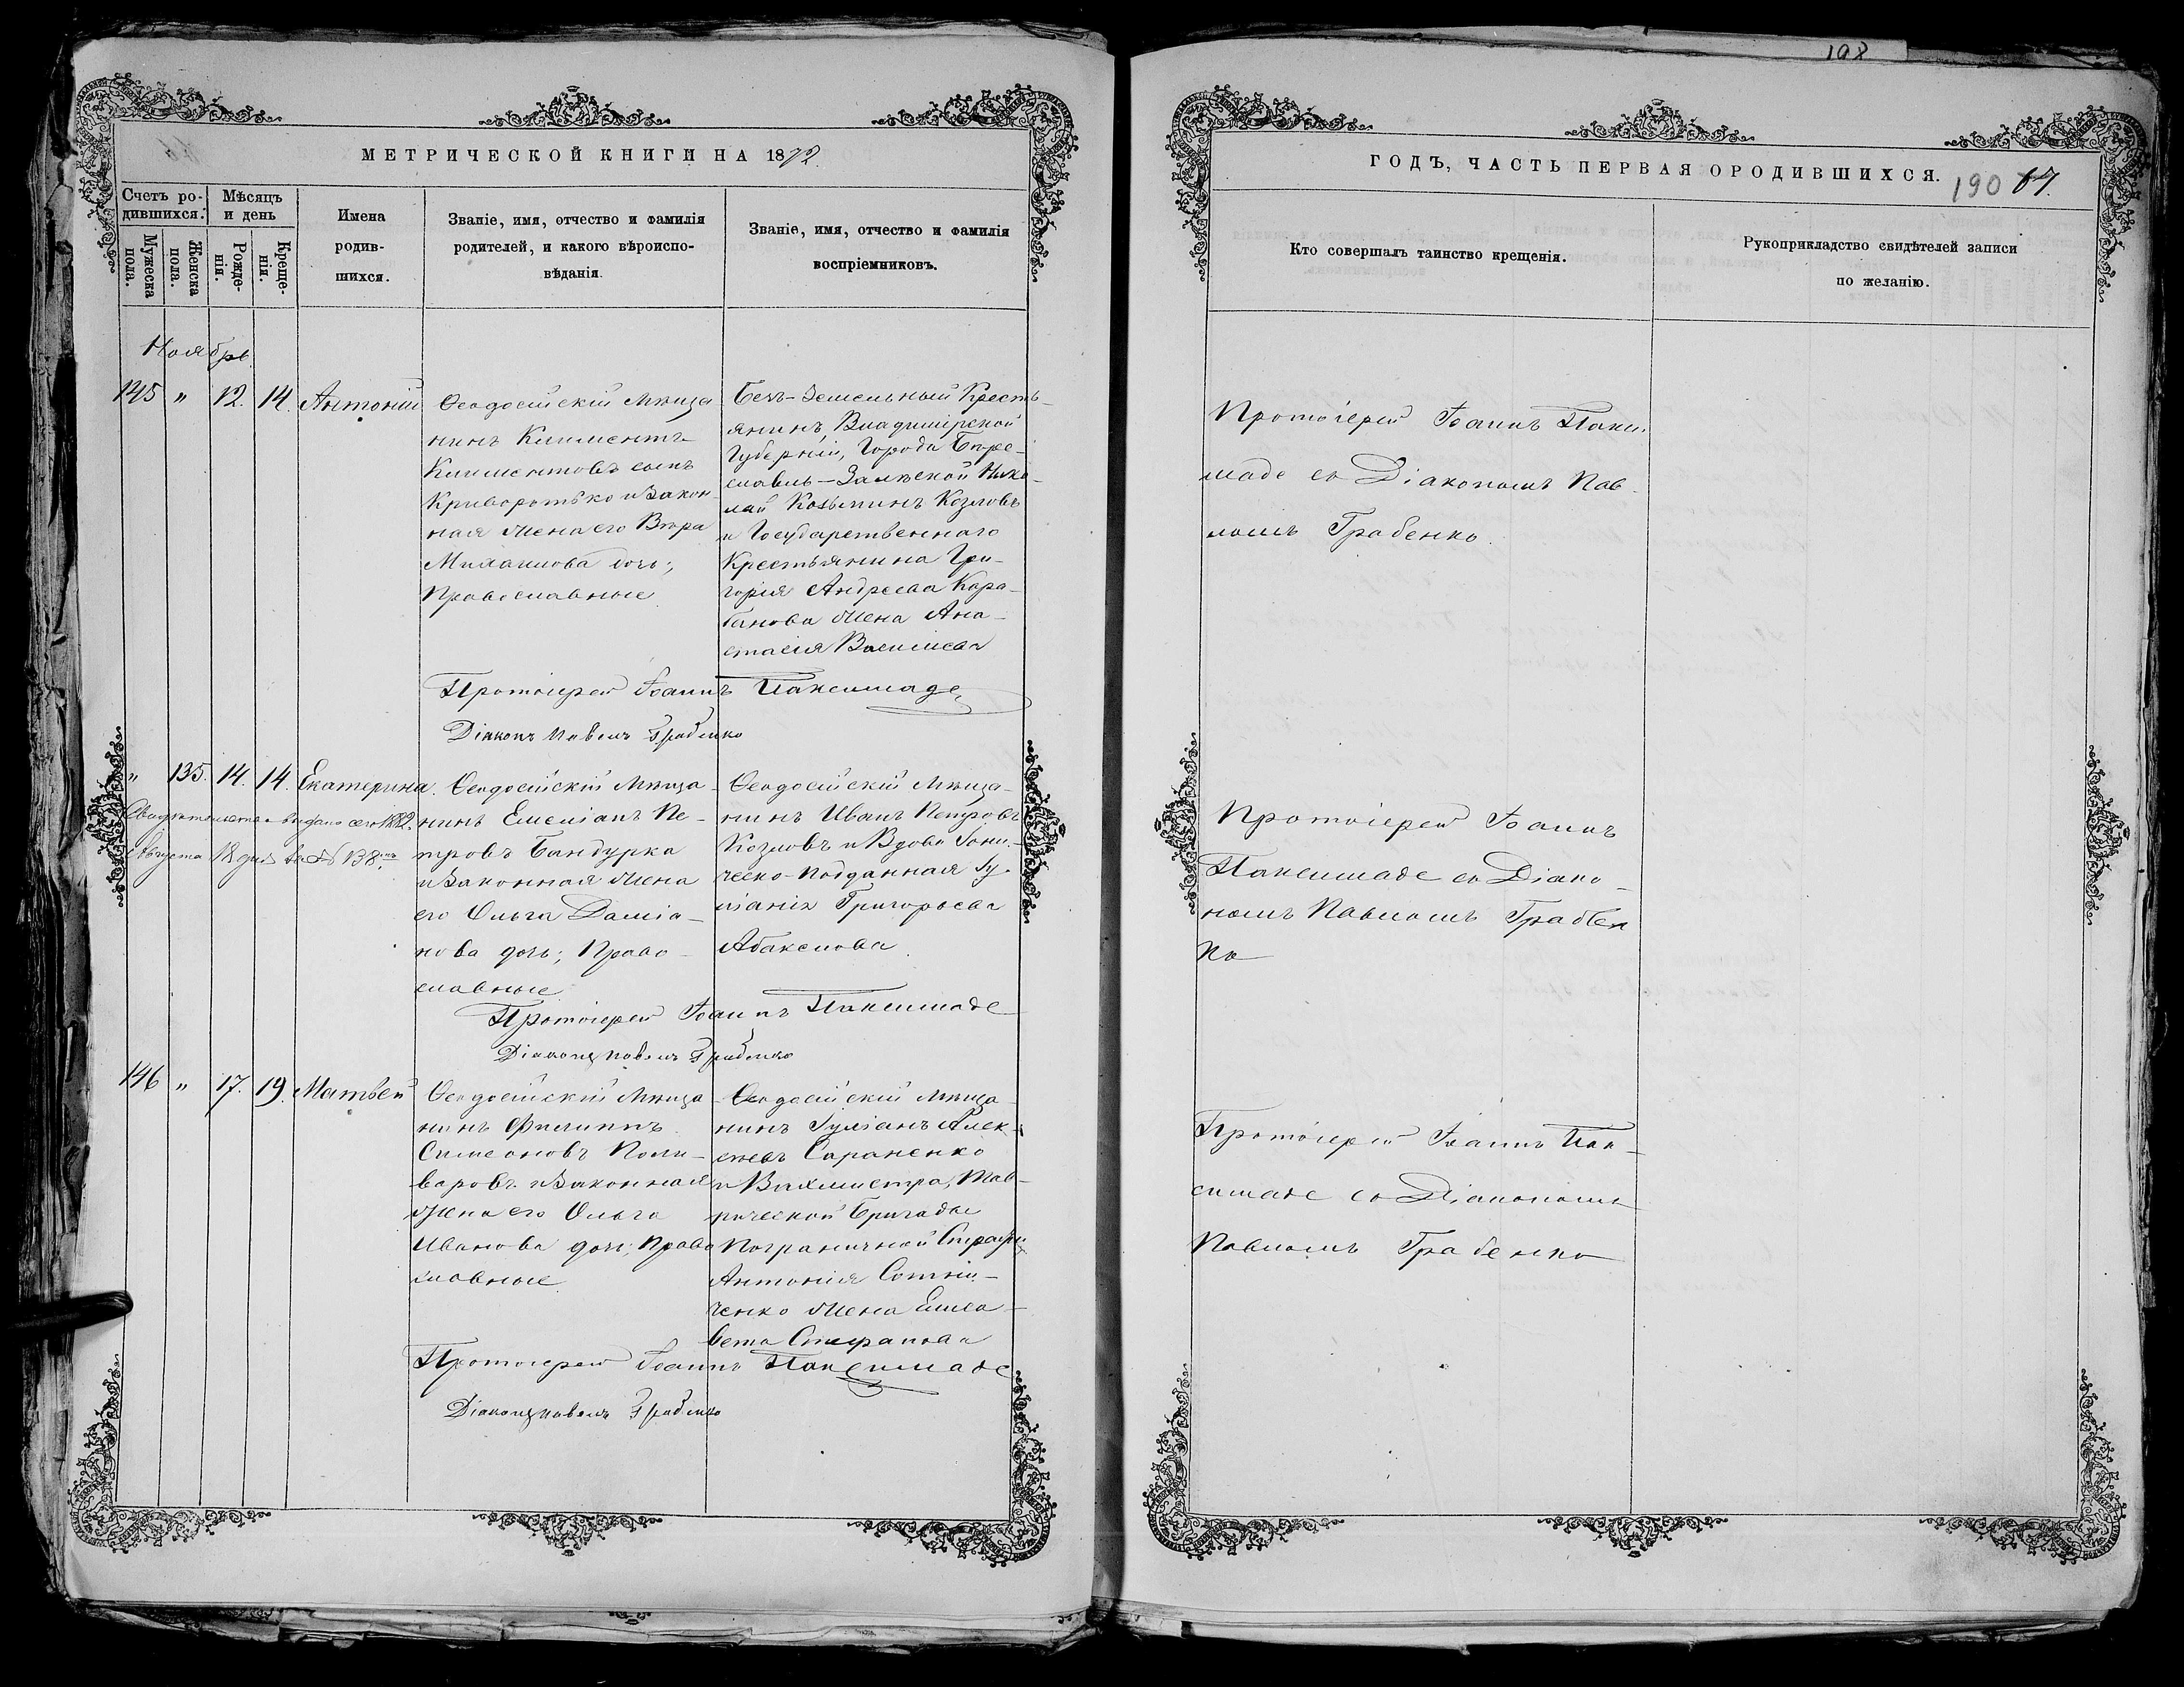 МЕТРИЧЕСКОЙ КНИГИ НА 1872.
Счетъ ро-
дившихся.
Мужеска
пола.
Женска
пола.
Мѣсяцъ
и день
Рожде-
нія.
Креще-
нія.
Имена
родив-
шихся.
Званіе, имя, отчество и фамилія
родителей, и какого вѣроиспо-
вѣданія.
Званіе, имя, отчество и фамилія
воспріемниковъ.
Ноябрь
145 " 12. 14. Антоній
Ѳеодосійскій Мѣща
нинъ Климентъ
Климентовъ сынъ
Криворотько и Закон-
ная Жена его Вѣра
Михаилова дочь;
Православные
Безъ-Земельный Кресть-
янинъ Владимірской
Губерніи, Города
Залѣской Нико-
лай Козьминъ Козловъ
и Государственнаго
Крестьянина Гри-
горія Андреева Кара-
банова Жена Ана-
стасія Васильева
Протоіерей Іоаннъ Паксимаде
Діаконъ Павелъ Грабенко
" 135. 14. 14. Екатерина.
Свидѣтельство выдано сего 1882.
Августа 18 дня за № 138мъ
Ѳеодосійскій Мѣща-
нинъ Емеліанъ Пе-
тровъ Бандурка
и Законная Жена
его Ольга Даміа-
нова дочь; Право-
славные
Ѳеодосійскій Мѣща-
нинъ Иванъ Петровъ
Козловъ и Вдова Іони-
ческо-подданная Іу-
ліанія Григорьева
Абаксмова
Протоіерей Іоаннъ Паксимаде
Діаконъ Павелъ Грабенко
146 " 17. 19. Матвей
Ѳеодосійскій Мѣща
нинъ Филиппъ
Симеоновъ Поли-
варовъ и Законная
Жена его Ольга
Иванова дочь; Право
славные
Ѳеодосійскій Мѣща-
нинъ Іуліанъ Алек-
сѣевъ Сараненко
и Вахмистра, Тав-
рической Бригады
Пограничной Стражи
Антонія Сотни-
ченко Жена Елиса-
вета Стефанова
Протоіерей Іоаннъ Паксимаде
Діаконъ Павелъ Грабенко
198
ГОДЪ, ЧАСТЬ ПЕРВАЯ ОРОДИВШИХСЯ.
190 67.
Кто совершалъ таинство крещенія.
Рукоприкладство свидѣтелей записи
по желанію.
Протоіерей Іоаннъ Пакси-
маде съ Діакономъ Пав-
ломъ Грабенко.
Протоіерей Іоаннъ
Паксимаде съ Діако-
номъ Павломъ Грабен
ко
Протоіерей Іоаннъ Пак-
симаде съ Діакономъ
Павломъ Грабенко